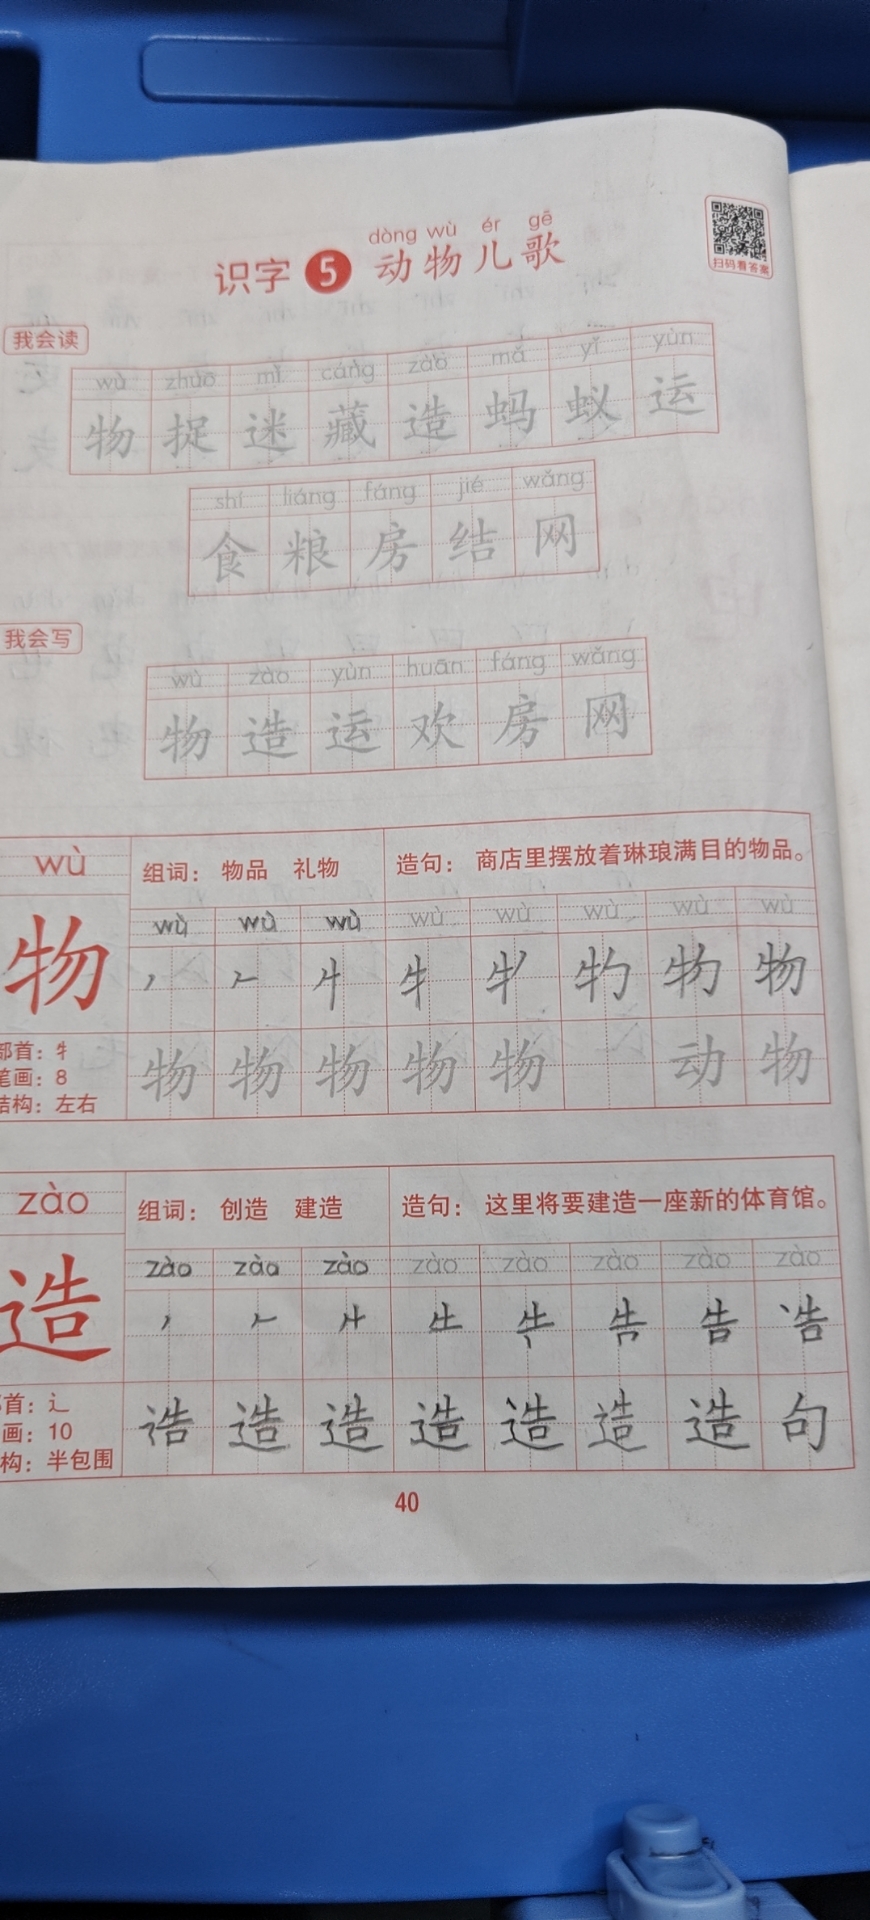 dòng wù ér gē
识字 5 动物儿歌
扫码看答案
我会读
wù zhuō mí cáng zào mǎ yǐ yùn
物 捉 迷 藏 造 蚂 蚁 运
shí liáng fáng jié wǎng
食 粮 房 结 网
我会写
wù zào yùn huān fáng wǎng
物 造 运 欢 房 网
wù 组词：物品 礼物 造句：商店里摆放着琳琅满目的物品。
wù wù wù wù wù wù wù wù
物
牜 物 物
部首：牜
笔画：8
结构：左右
物 物 物 物 物 动 物
zào 组词：创造 建造 造句：这里将要建造一座新的体育馆。
zào zào zào zào zào zào zào zào
造
告
首：辶
画：10
构：半包围
造 造 造 造 造 造 句
40